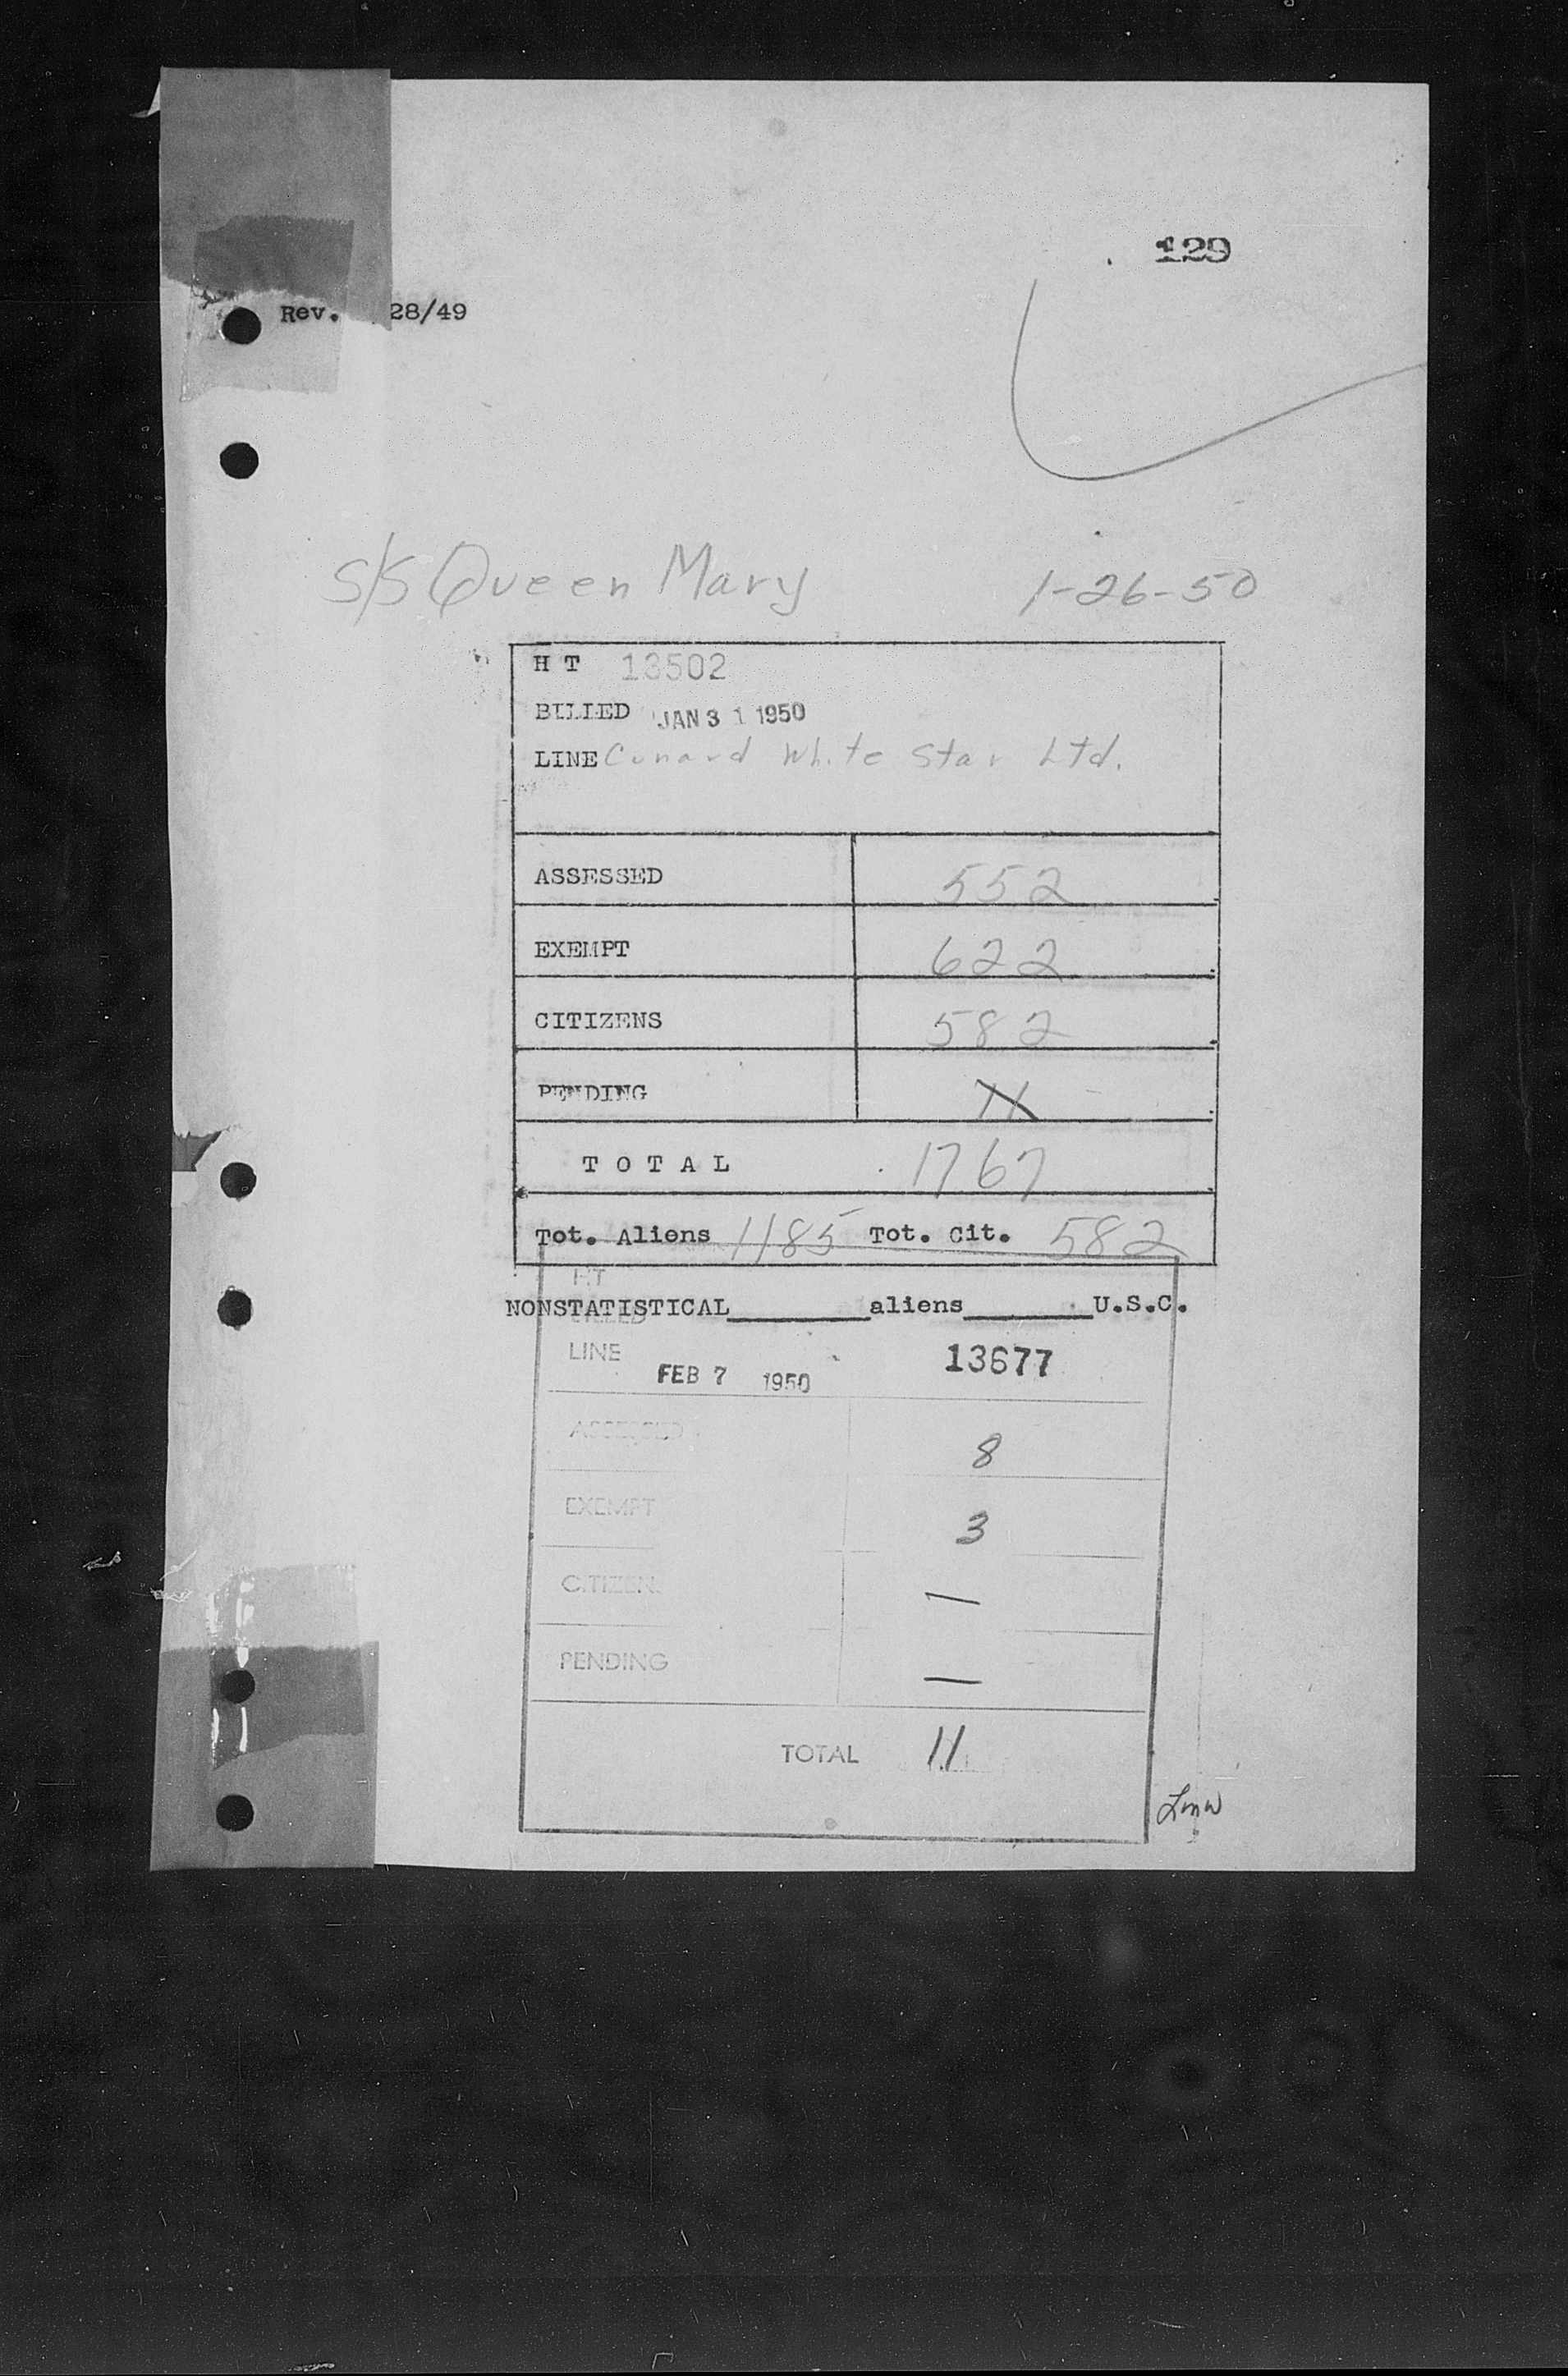 129
Rev. 28/49
S/S Queen Mary 1-26-50
H T 13502
BILLED JAN 31 1950
LINE Cunard White Star Ltd.
ASSESSED 552
EXEMPT 622
CITIZENS 582
PENDING 11
T O T A L 1767
Tot. Aliens 1185 Tot. Cit. 582
HT
NONSTATISTICAL________aliens________U.S.C.
BILLED
LINE 13677
FEB 7 1950
ASSESSED 8
EXEMPT 3
CITIZENS —
PENDING —
TOTAL 11
Lmw